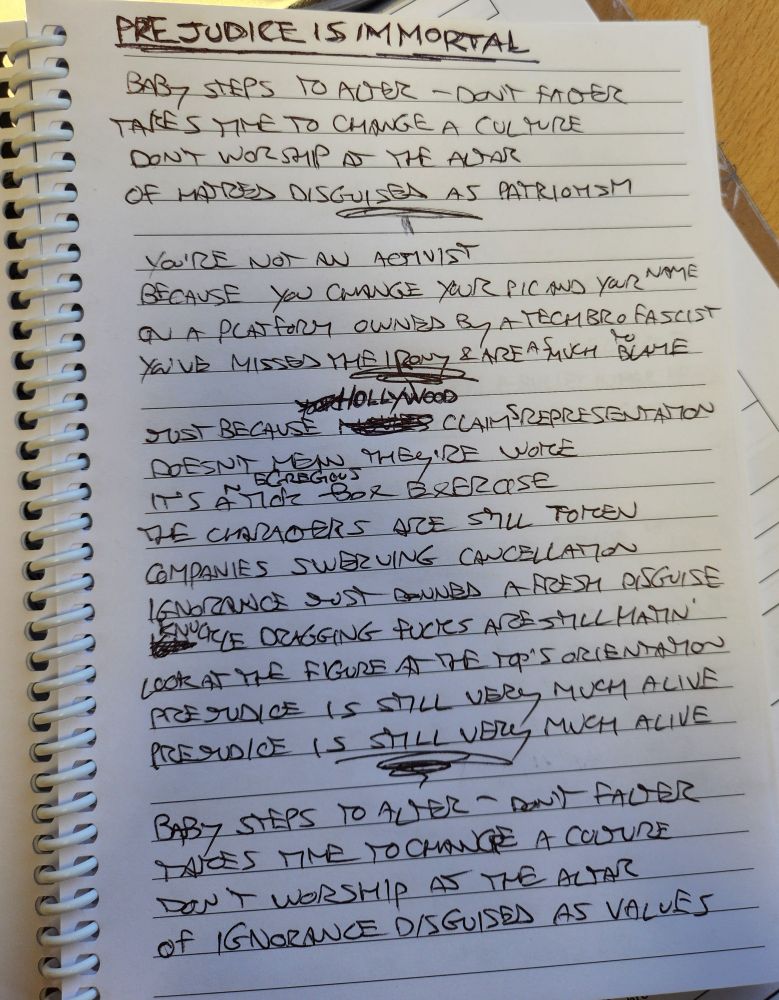 PREJUDICE IS IMMORTAL
BABY STEPS TO ALTER - DON'T FALTER
TAKES TIME TO CHANGE A CULTURE
DON'T WORSHIP AT THE ALTAR
OF HATRED DISGUISED AS PATRIOTISM
YOU'RE NOT AN ACTIVIST
BECAUSE YOU CHANGE YOUR PIC AND YOUR NAME
ON A PLATFORM OWNED BY A TECH BRO FASCIST
YOU'VE MISSED THE IRONY & ARE AS MUCH TO BLAME
JUST BECAUSE HOLLYWOOD CLAIMS REPRESENTATION
DOESN'T MEAN THEY'RE WOKE
IT'S AN EGREGIOUS TICK BOX EXERCISE
THE CHARACTERS ARE STILL TOKEN
COMPANIES SWERVING CANCELLATION
IGNORANCE JUST DONNED A FRESH DISGUISE
KNUCKLE DRAGGING FUCKS ARE STILL HATIN'
LOOK AT THE FIGURE AT THE TOP'S ORIENTATION
PREJUDICE IS STILL VERY MUCH ALIVE
PREJUDICE IS STILL VERY MUCH ALIVE
BABY STEPS TO ALTER - DON'T FALTER
TAKES TIME TO CHANGE A CULTURE
DON'T WORSHIP AT THE ALTAR
OF IGNORANCE DISGUISED AS VALUES